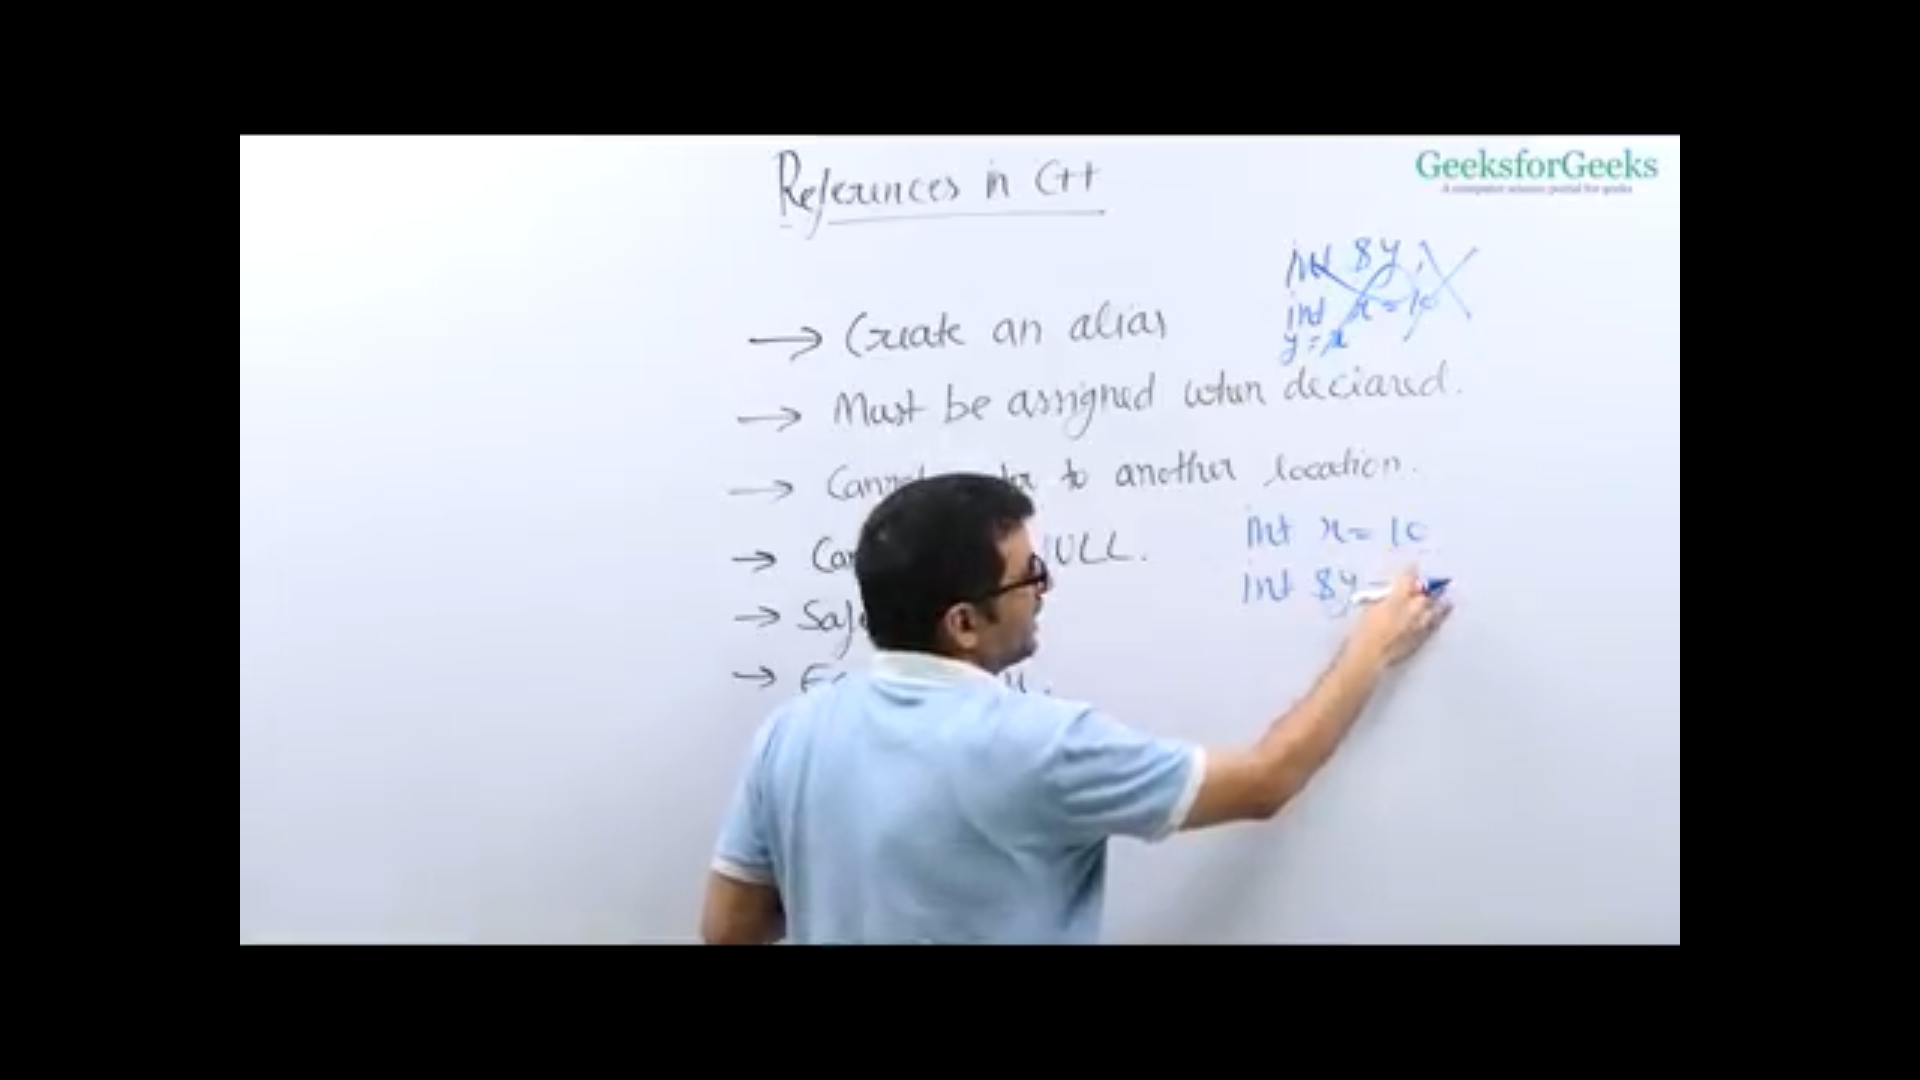 References in C++
GeeksforGeeks
A computer science portal for geeks
int &y;
int x=10
y=x
→ Create an alias
→ Must be assigned when declared.
→ to another location.
→
int x=10
int &y=
→
→